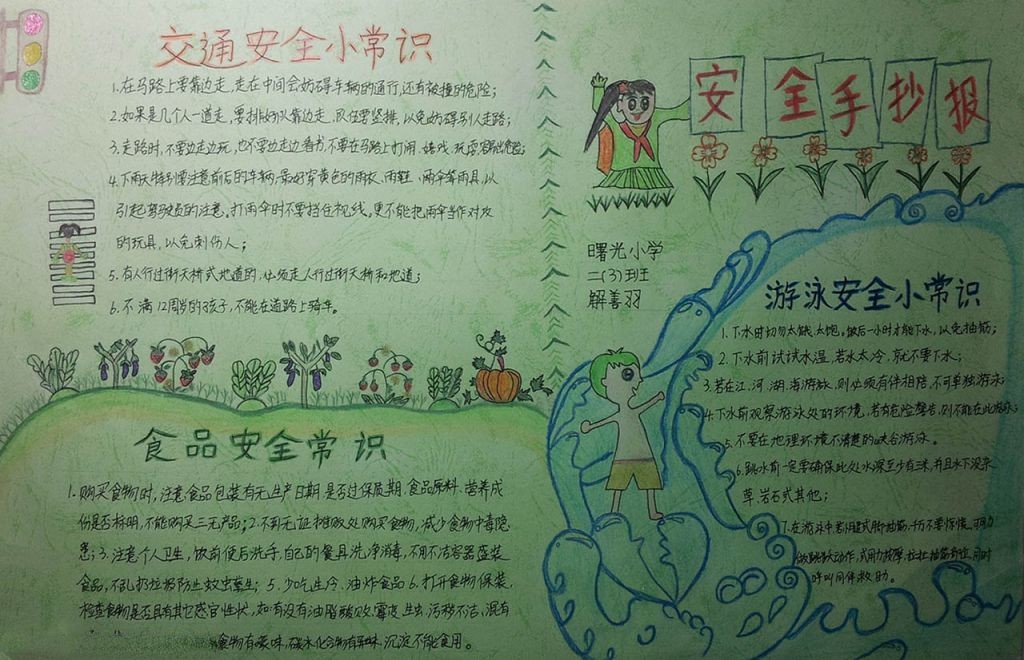 交通安全小常识
1.在马路上要靠边走,走在中间会妨碍车辆的通行,还有被撞的危险;
2.如果是几个人一道走,要排好队靠边走,队伍要竖排,以免妨碍别人走路;
3.走路时,不要边走边玩,也不要边走边看书,不要在马路上打闹、嬉戏、玩耍,
4.下雨天特别要注意前后的车辆,最好穿黄色的雨衣、雨鞋、雨伞等雨具,以
引起驾驶员的注意,打雨伞时不要挡住视线,更不能把雨伞当作对攻
的玩具,以免刺伤人;
5.有人行过街天桥或地道的,必须走人行过街天桥和地道;
6.不满12周岁的孩子,不能在道路上骑车。
食品安全常识
1.购买食物时,注意食品包装有无生产日期,是否过保质期,食品原料、营养成
份是否标明,不能购买三无产品;2.不到无证摊贩处购买食物,减少食物中毒隐
患;3.注意个人卫生,饭前便后洗手,自己的餐具洗净消毒,不用不洁容器盛装
食品,不乱扔垃圾防止蚊虫孳生;5.少吃生冷、油炸食品6.打开食物保装,
检查食物是否具有其它感官性状,如有没有油脂酸败、霉变、生虫、污秽不洁、混有
食物有霉味,碳水化合物有异味,沉淀不能食用。
安全手抄报
曙光小学
二(3)班
解善羽
游泳安全小常识
1.下水时切勿太饿、太饱。饭后一小时才能下水,以免抽筋;
2.下水前试试水温,若水太冷,就不要下水;
3.若在江、河、湖、海游泳,则必须有伴相陪,不可单独游泳;
4.下水前观察游泳处的环境,若有危险警告,则不能在此游泳;
5.不要在地理环境不清楚的峡谷游泳。
6.跳水前一定要确保此处水深至少有三米,并且水下没杂
草、岩石或其他;
7.在游泳中若小腿或脚抽筋,千万不要惊慌,用力
做跳跃动作,或用力按摩、拉扯抽筋部位,同时
呼叫同伴救助。